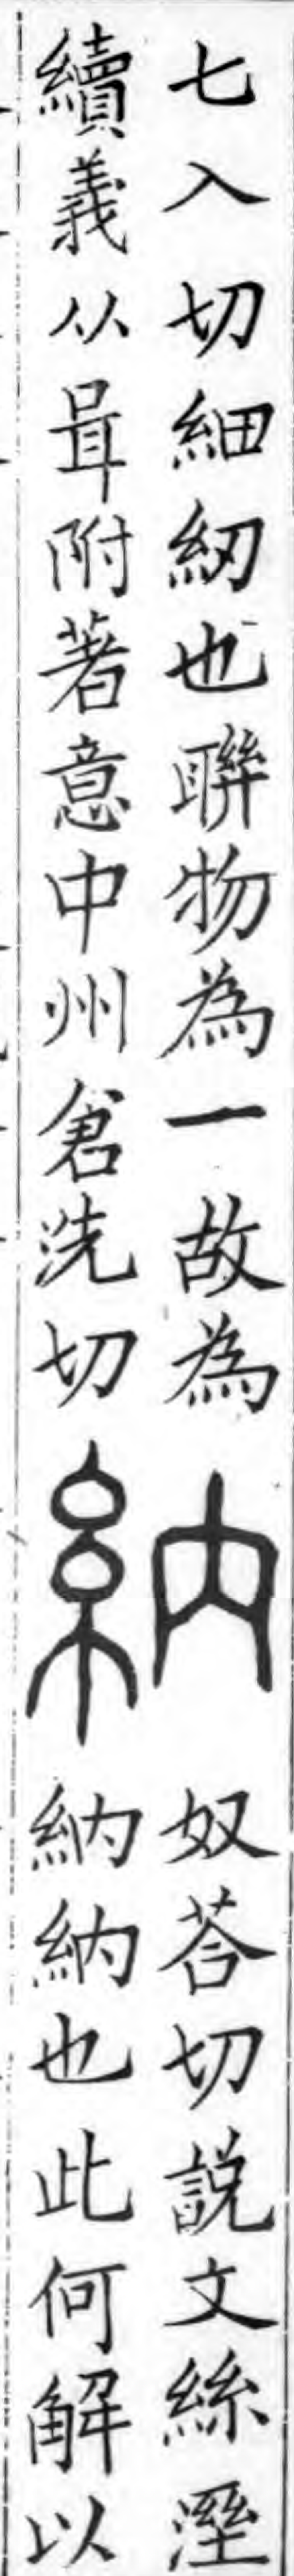 七入切細紉也聯物為一故為
續義从咠附著意中州倉洗切
納
奴荅切說文絲溼
納納也此何解以